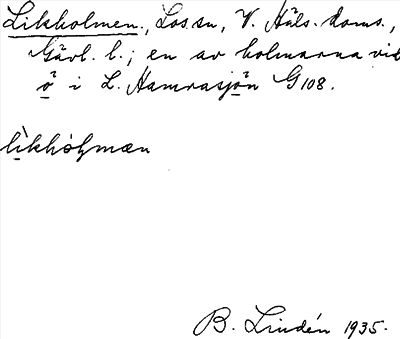 Likholmen., Los sn, V. Häls. doms.,
Gävl. l.; en av holmarna vid
ö i L. Hamrasjön G 108.
likhòḷmæn
B. Lindén 1935.